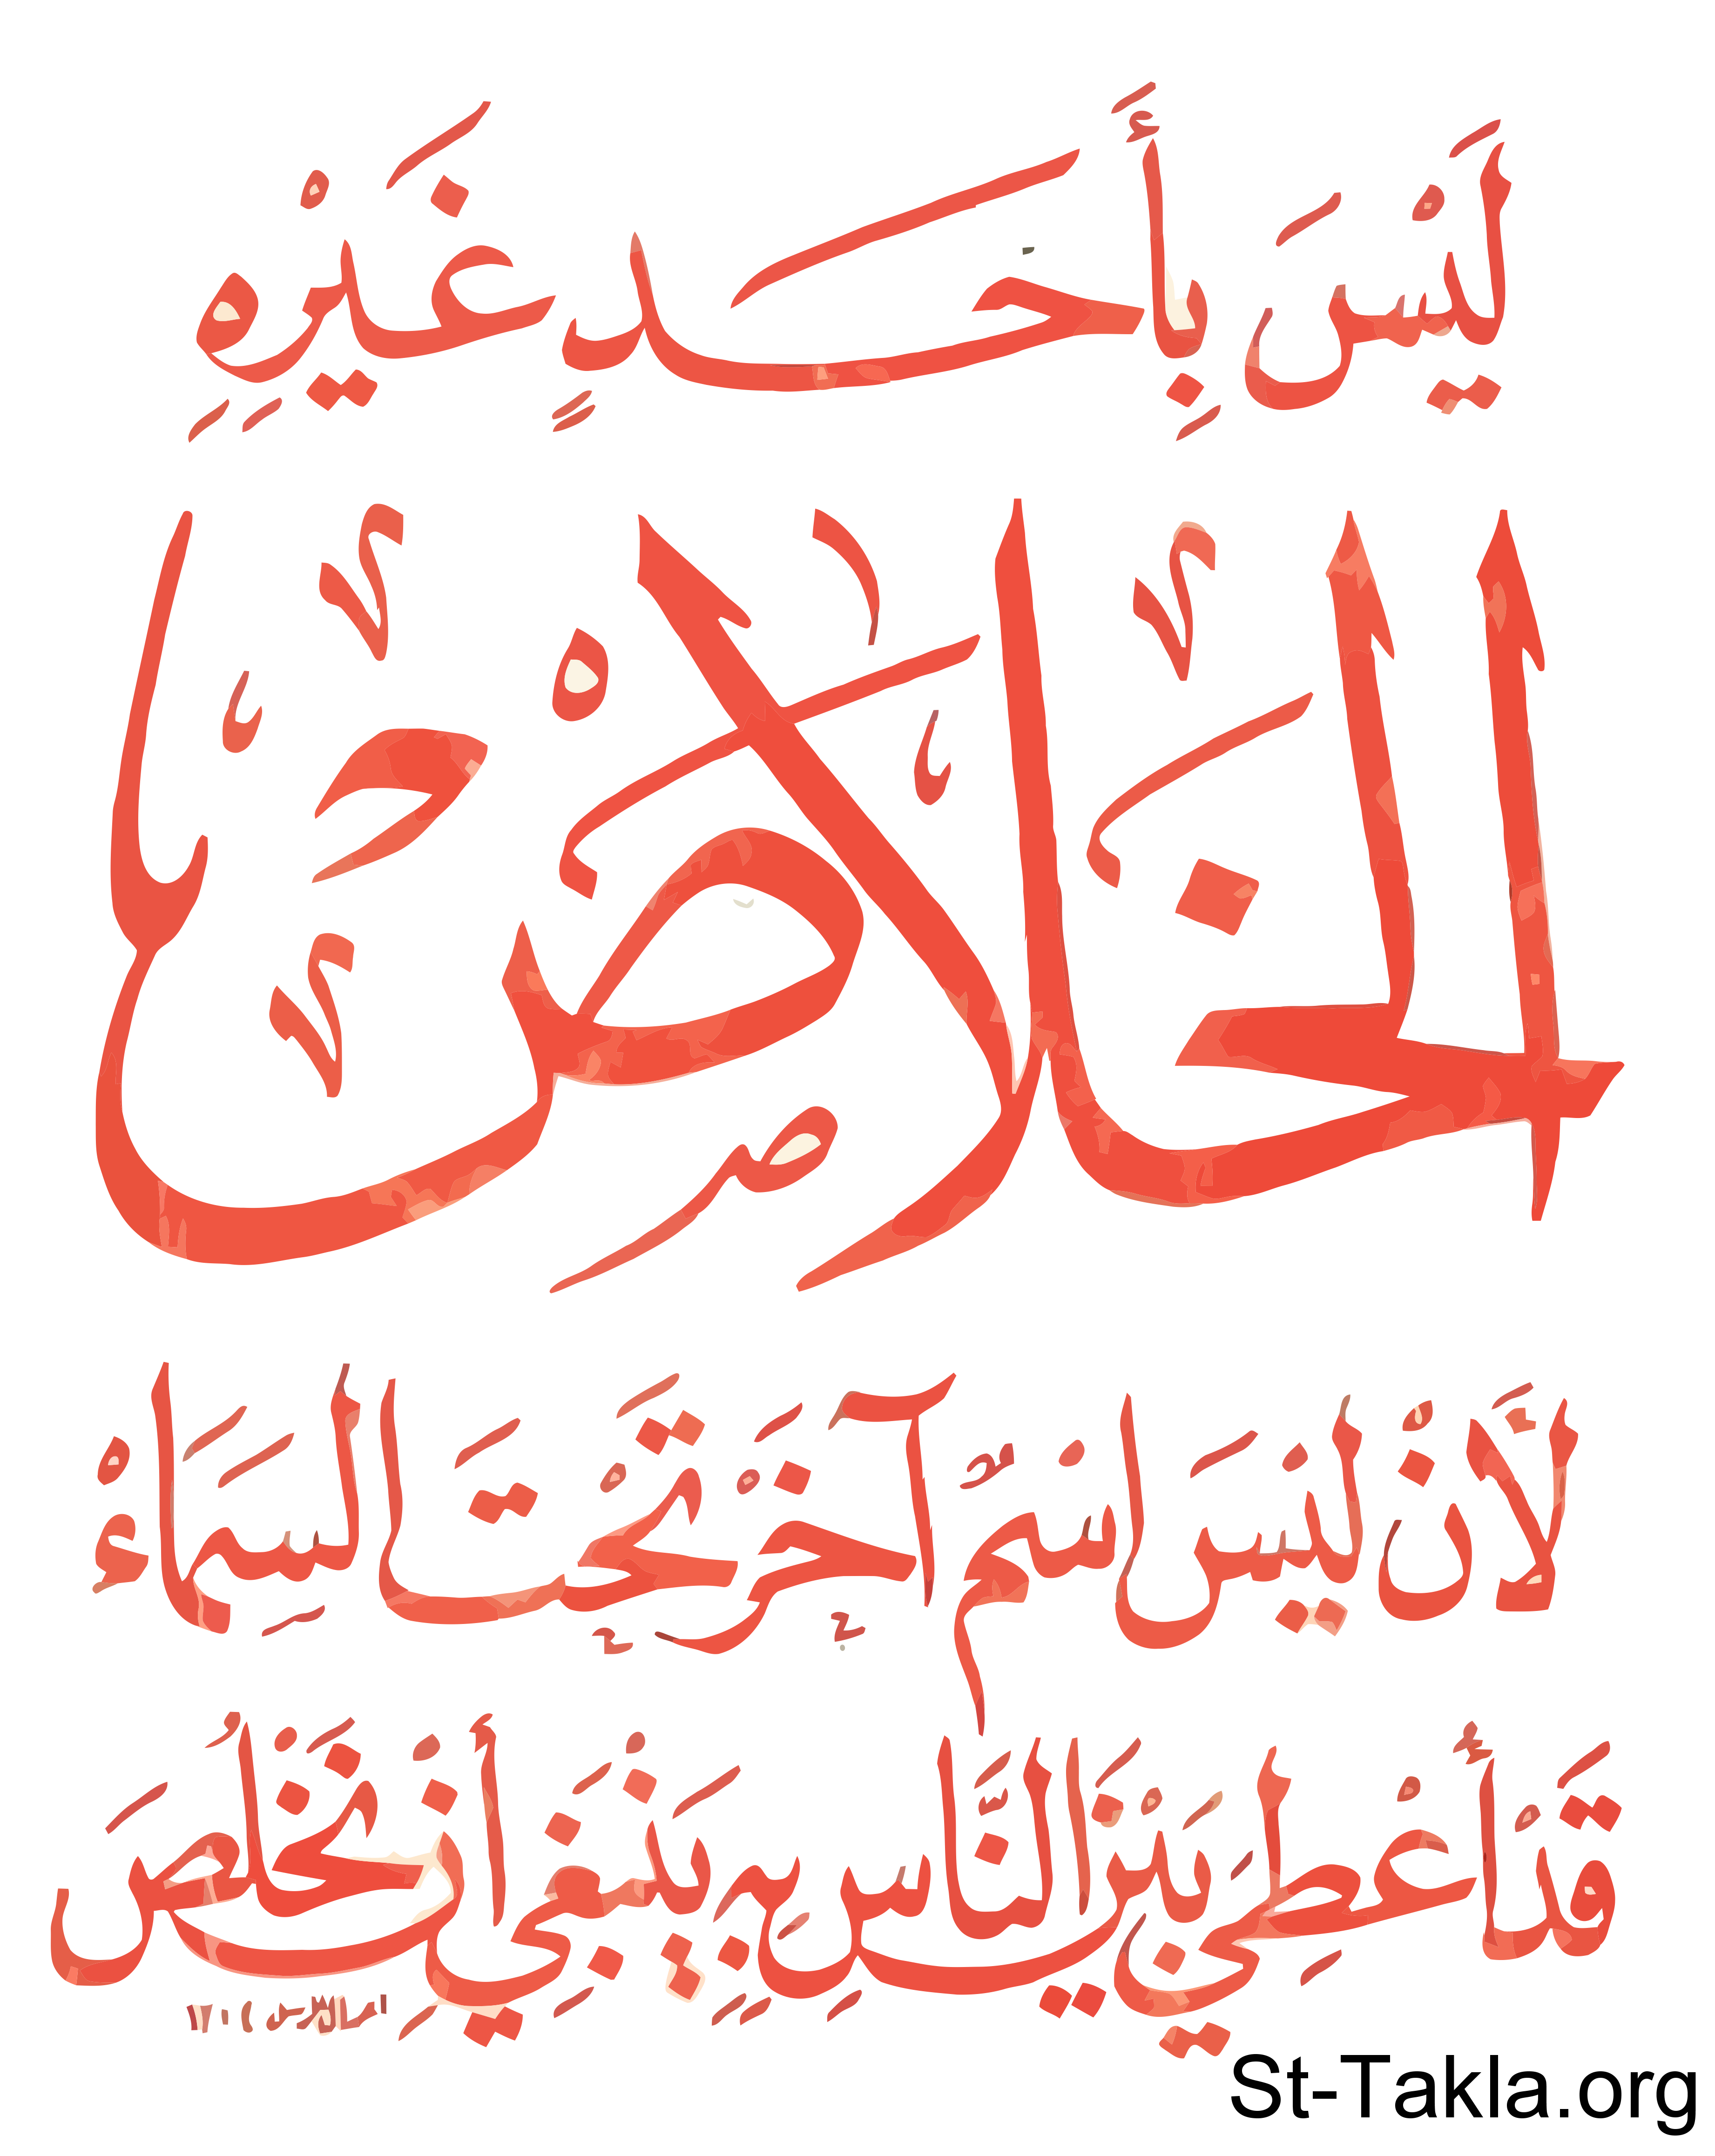 لَيْسَ بِأَحَدٍ غَيْرِهِ
الخَلاَصُ
لأَنْ لَيْسَ اسمٌ آخَرُ تَحْتَ السَّمَاءْ
قَدْ أُعْطِيَ بَيْنَ النَّاسِ بِهِ يَنْبَغِي أَنْ نَخْلُصَ
St-Takla.org